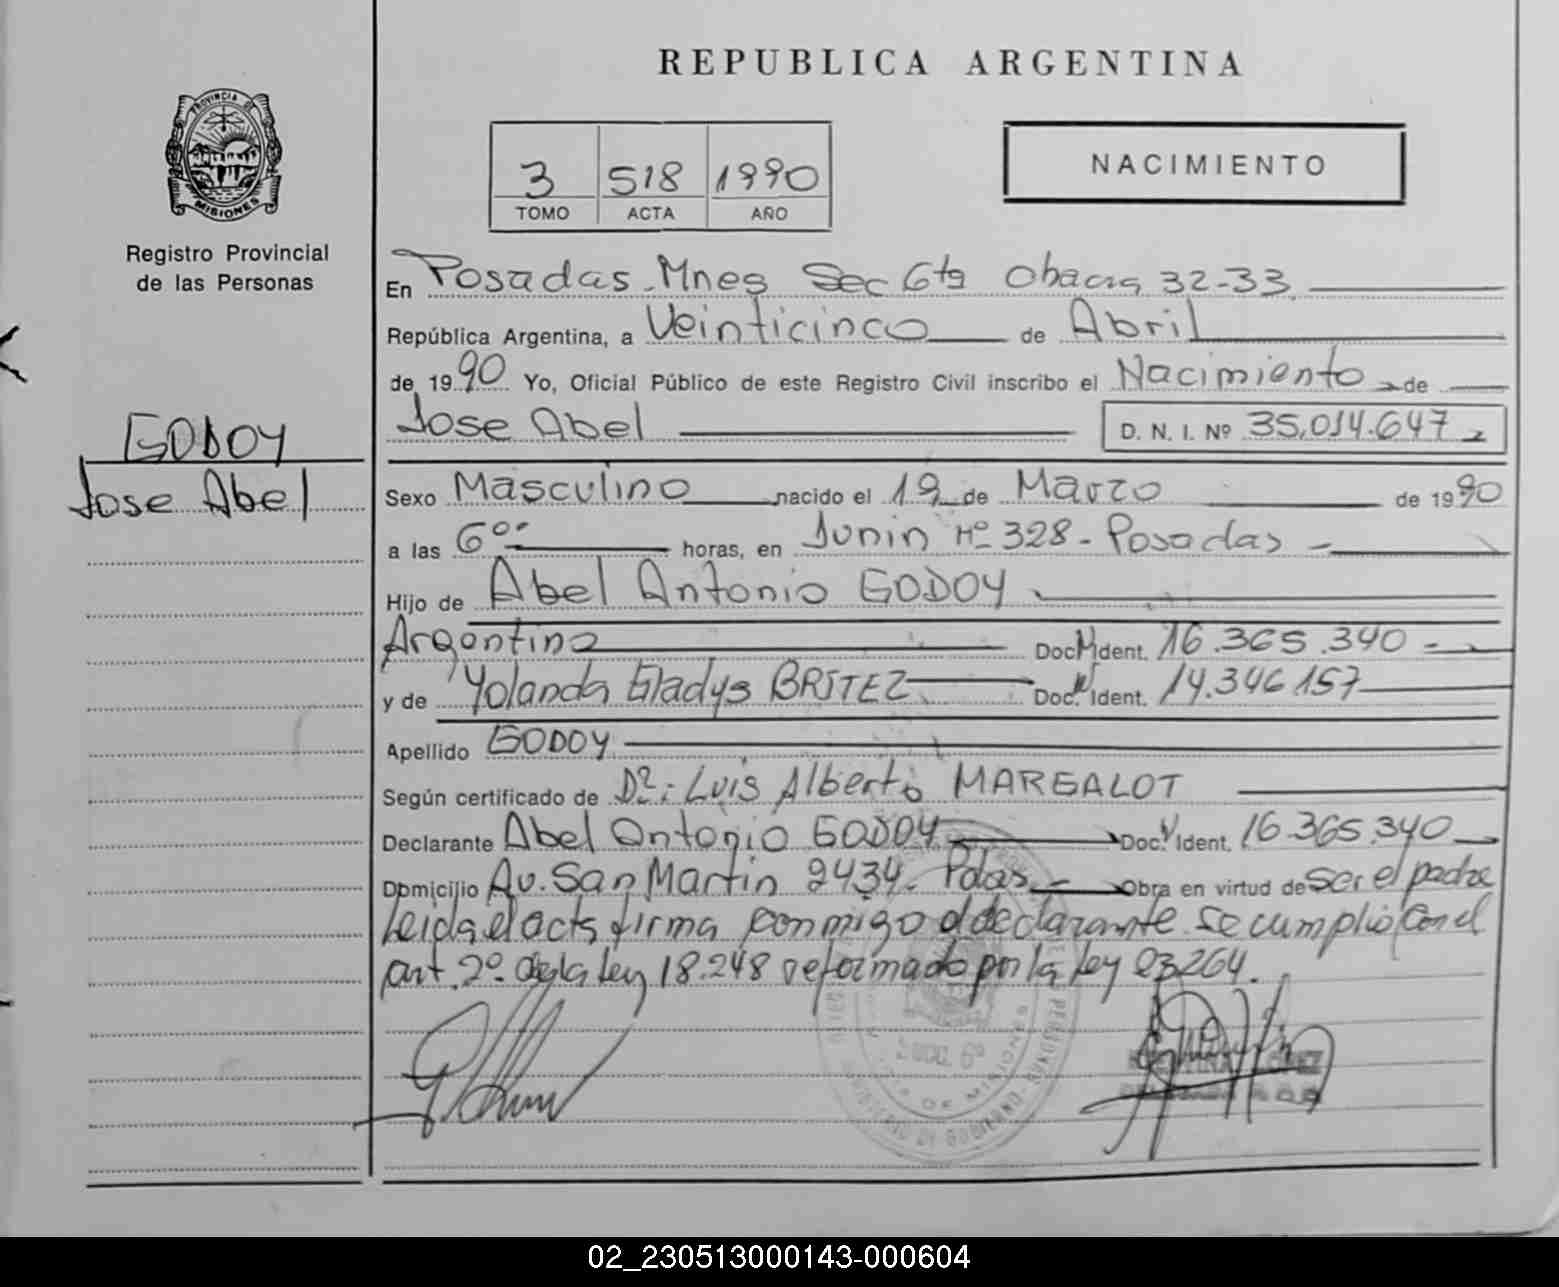 REPUBLICA ARGENTINA
PROVINCIA DE
MISIONES
Registro Provincial
de las Personas
3 518 1990
TOMO ACTA AÑO
NACIMIENTO
En Posadas Mnes Sec 6ta Chacra 32-33
República Argentina, a Veinticinco de Abril
de 1990 Yo, Oficial Público de este Registro Civil inscribo el Nacimiento de
Jose Abel D. N. I. Nº 35.014.647
GODOY
Jose Abel
Sexo Masculino nacido el 19 de Marzo de 1990
a las 6 horas, en Junin Nº 328 - Posadas -
Hijo de Abel Antonio GODOY
Argentino Doc. Ident. 16.365.340
y de Yolanda Gladys BRITEZ Doc. Ident. 14.346.157
Apellido GODOY
Según certificado de Dr.: Luis Alberto MARGALOT
Declarante Abel Antonio GODOY Doc. Ident. 16.365.340
Domicilio Av. San Martin 2434. Pdas. - Obra en virtud de ser el padre
Leida el acta firma conmigo el declarante se cumplio con el
art. 2º de la ley 18.248 reformado por la ley 23264.
02_230513000143-000604